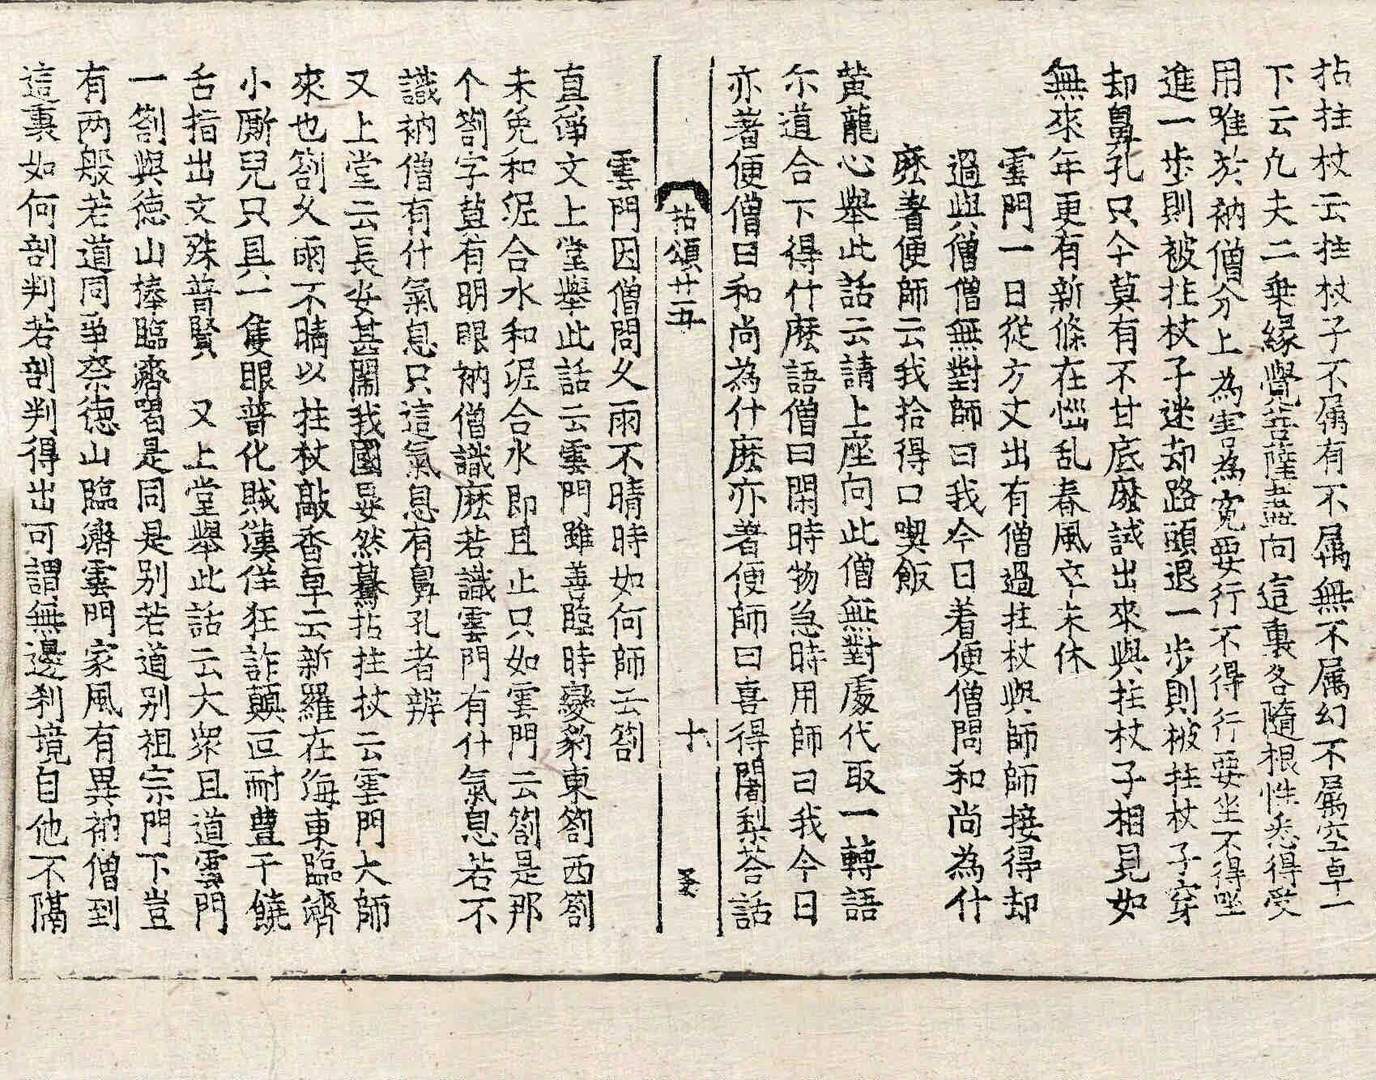 拈拄杖云拄杖子不属有不属無不属幻不属空卓一
下云凡夫二乗縁覺菩薩盡向這裏各隨根性悉得受
用唯於衲僧分上為害為寃要行不得行要坐不得坐
進一步則被拄杖子迷却路頭退一步則被拄杖子穿
却鼻孔只今莫有不甘底麽試出來與拄杖子相見如
無來年更有新條在惱乱春風卒未休
雲門一日從方丈出有僧過拄杖與師師接得却
過與僧僧無對師曰我今日着便僧問和尚為什
麽着便師云我拾得口喫飯
黄龍心舉此話云請上座向此僧無對處代取一轉語
尓道合下得什麽語僧曰閑時物急時用師曰我今日
亦著便僧曰和尚為什麽亦著便師曰喜得闍梨荅話
拈頌廿五 十
雲門因僧問久雨不晴時如何師云劄
真淨文上堂舉此話云雲門雖善臨時變豹東劄西劄
未免和泥合水和泥合水即且止只如雲門云劄是那
个劄字莫有明眼衲僧識麽若識雲門有什氣息若不
識衲僧有什氣息只這氣息有鼻孔者辨
又上堂云長安甚閙我國晏然驀拈拄杖云雲門大師
來也劄久雨不晴以拄杖敲香卓云新羅在海東臨濟
小廝兒只具一隻眼普化賊漢佯狂詐顛叵耐豊干饒
舌指出文殊普賢 又上堂舉此話云大衆且道雲門
一劄與徳山捧臨濟喝是同是别若道别祖宗門下豈
有两般若道同争柰徳山臨濟雲門家風有異衲僧到
這裏如何剖判若剖判得出可謂無邊刹境自他不隔